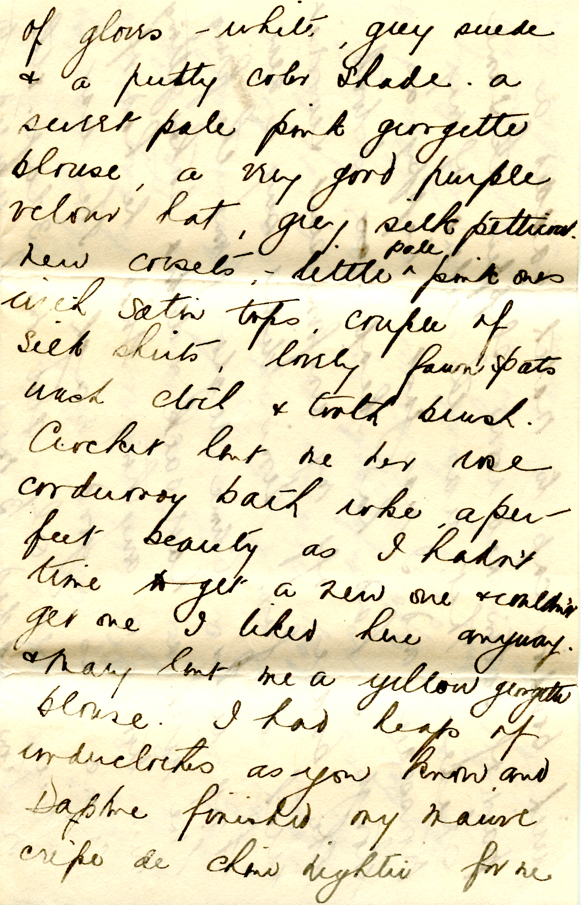 of gloves - white, grey suede
& a putty color shade. a
sweet pale pink georgette
blouse, a very good purple
velour hat, grey silk petticoat.
new corsets, - little ^ pale pink ones
with satin tops, couple of
silk shirts, lovely fawn spats
wash cloth & tooth brush.
Crocket lent me her rose
corduroy bath robe, a per-
fect beauty as I hadn't
time to get a new one & couldn't
get one I liked here anyway.
& Mary lent me a yellow georgette
blouse. I had heaps of
underclothes as you know and
Daphne finished my mauve
crêpe de chine nightie for me